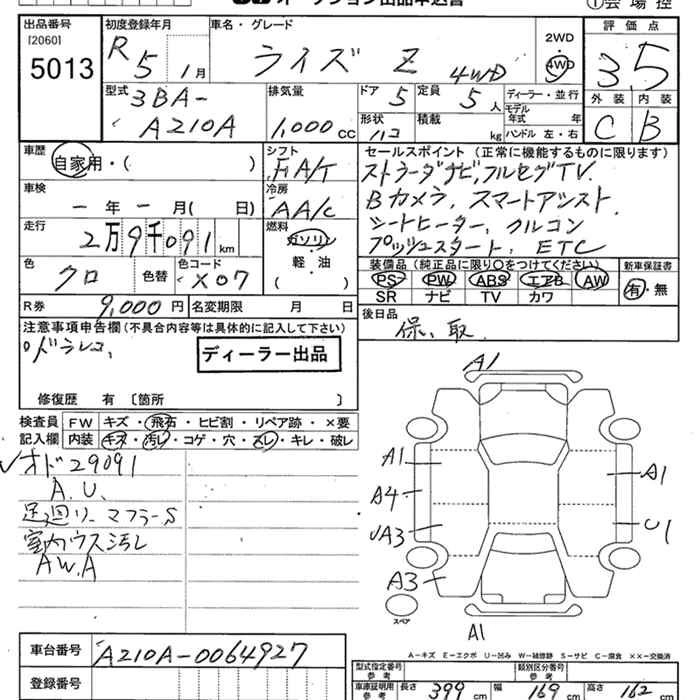 オークション出品申込書
①会場控
出品番号 [2060] 5013
初度登録年月 R5 1月
車名・グレード ライズ Z 4WD
2WD ・ 4WD
評価点 3.5
外装 C 内装 B
型式 3BA-A210A
排気量 1,000 CC
ドア 5
形状 ハコ
定員 5 人
積載 kg
ディーラー・並行
モデル年式 年
ハンドル 左・右
車歴 自家用・( )
シフト FA/T
車検 ー年ー月( 日)
冷房 AA/C
走行 2万9千091 km
燃料 ガソリン・軽油 ( )
色 クロ 色替
色コード X07
R券 9,000円
名変期限 月 日
セールスポイント (正常に機能するものに限ります)
ストラーダナビ, フルセグTV.
Bカメラ, スマートアシスト.
シートヒーター, クルコン
プッシュスタート, ETC
装備品 (純正品に限り○をつけてください)
PS PW ABS エアB AW
SR ナビ TV カワ
新車保証書 有・無
後日品
保、取
注意事項申告欄 (不具合内容等は具体的に記入して下さい)
ドラレコ、
ディーラー出品
修復歴 有 〔箇所 〕
検査員記入欄
FW キズ・飛石・ヒビ割・リペア跡・×要
内装 キズ・汚レ・コゲ・穴・スレ・キレ・破レ
オド29091
A.U.
足廻リーマフラーS
室内ウス汚レ
AW.A
A1
A1
A4
UA3
A3
A1
U1
A1
スペア
A－キズ E－エクボ U－凹み W－補修跡 S－サビ C－腐食 ××－交換済
車台番号 A210A-0064927
登録番号
型式指定番号 参考
類別区分番号 参考
車庫証明用 参考 長さ 399 cm 幅 169 cm 高さ 162 cm